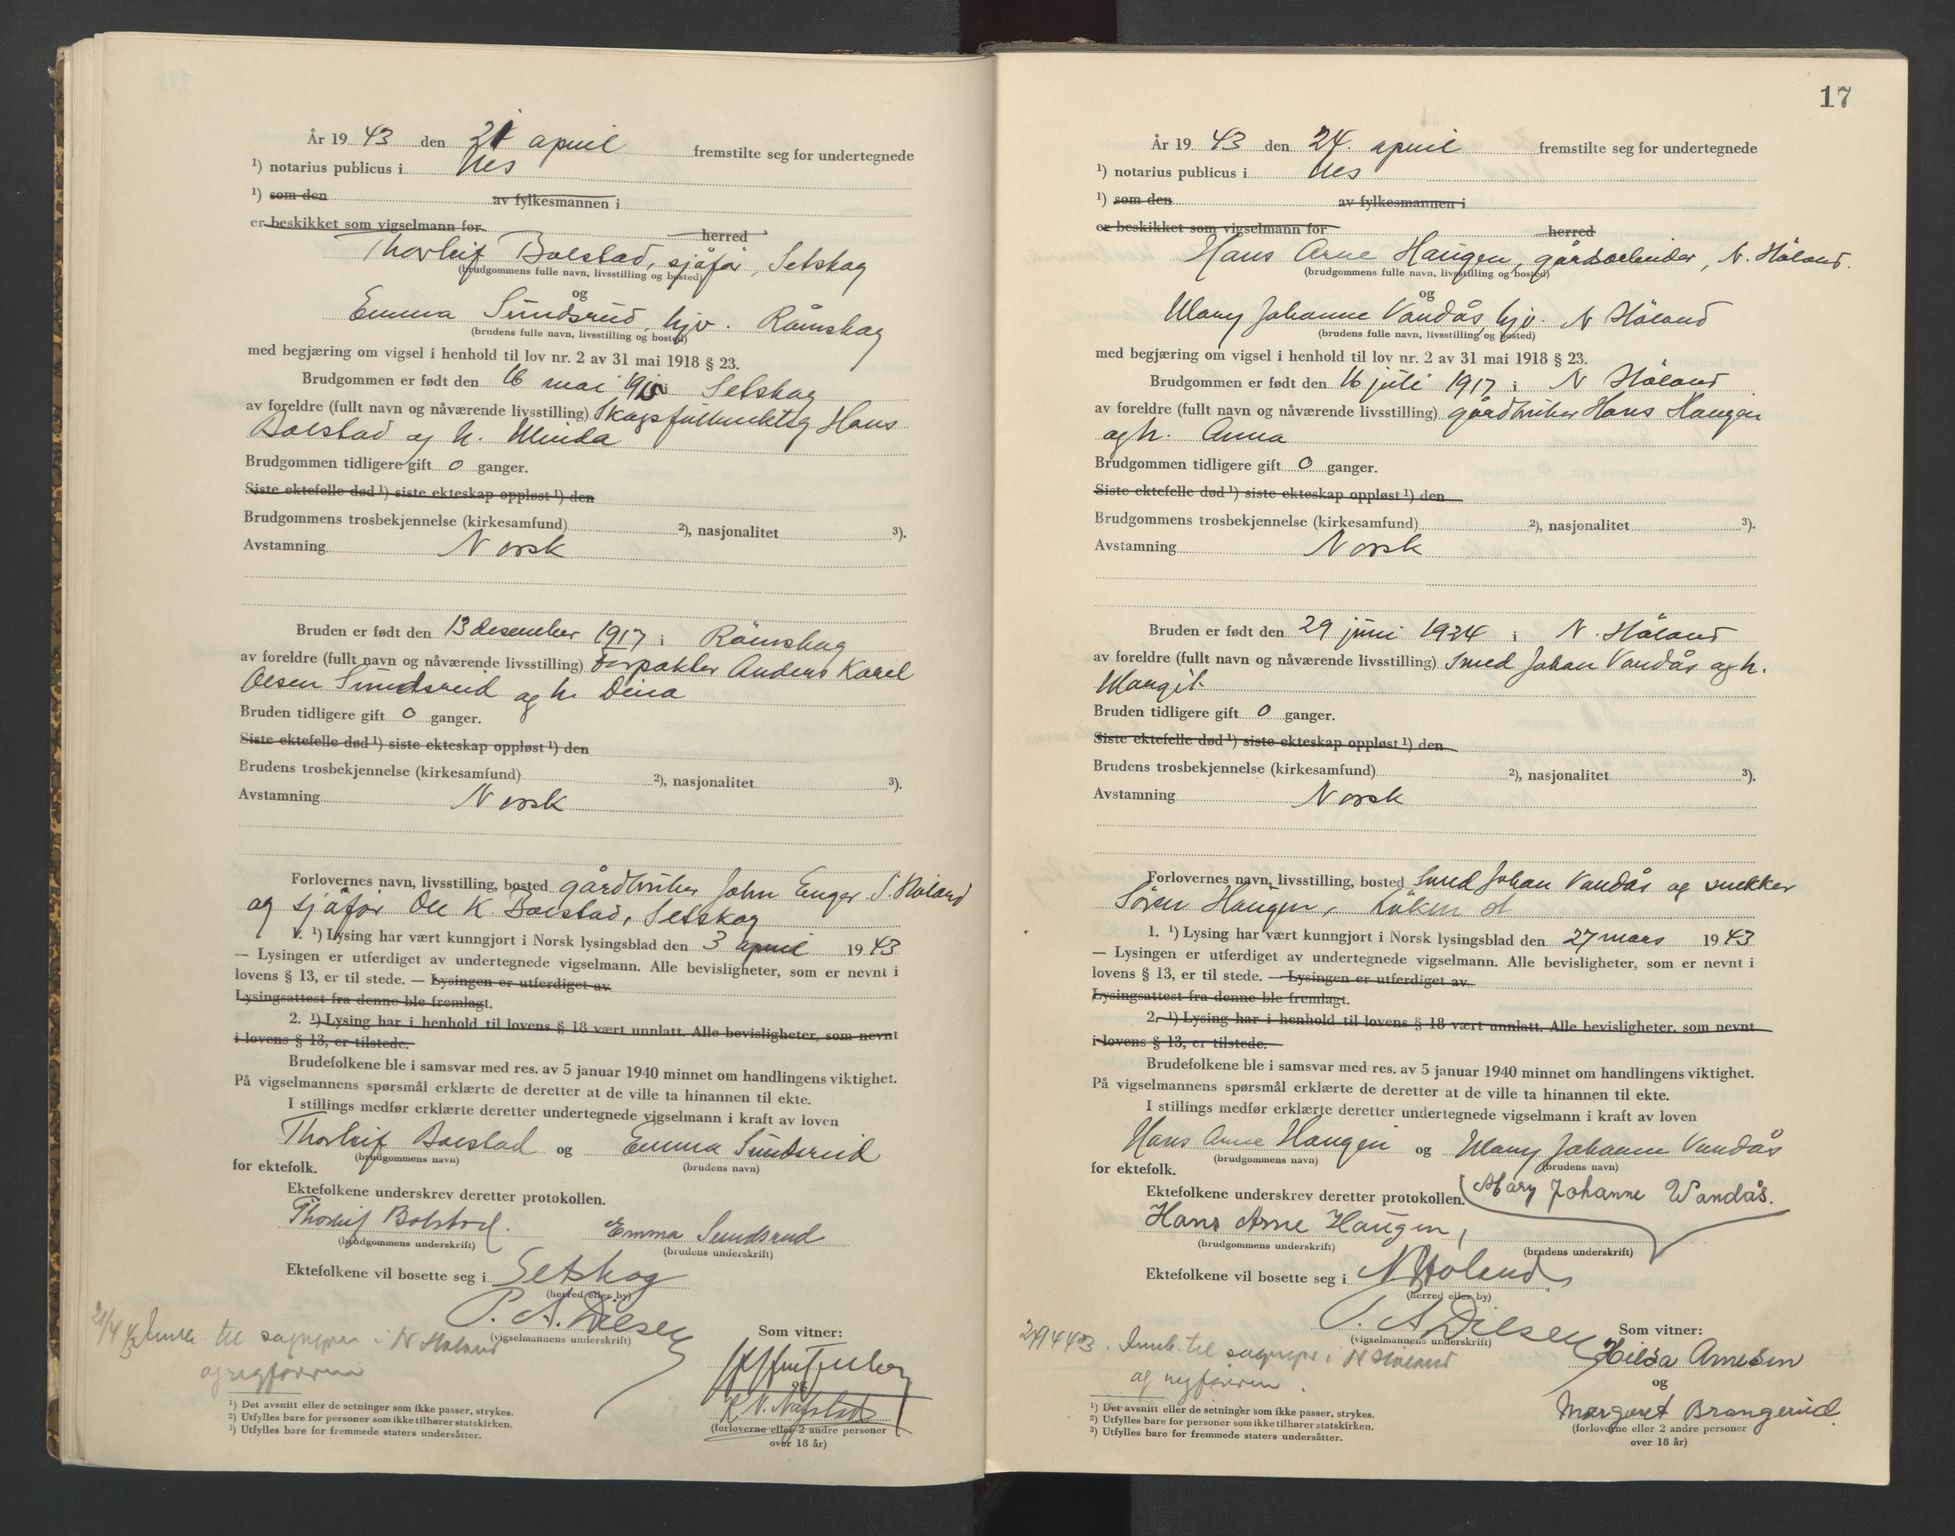 År 19 43 den 21 april fremstilte seg for undertegnede
¹) notarius publicus i Nes
¹) som den av fylkesmannen i
er beskikket som vigselmann for herred
Thorleif Bolstad, sjåfør, Setskog
(brudgommens fulle navn, livsstilling og bosted)
og
Emma Sundsrud, hjv. Rømskog
(brudens fulle navn, livsstilling og bosted)
med begjæring om vigsel i henhold til lov nr. 2 av 31 mai 1918 § 23.
Brudgommen er født den 16 mai i Setskog
av foreldre (fullt navn og nåværende livsstilling) Skogsfullmektig Hans
Bolstad og h. Minda
Brudgommen tidligere gift 0 ganger.
Siste ektefelle død ¹) siste ekteskap oppløst ¹) den
Brudgommens trosbekjennelse (kirkesamfund) ²), nasjonalitet ³).
Avstamning Norsk
Bruden er født den 13 desember 1917 i Rømskog
av foreldre (fullt navn og nåværende livsstilling) Forpakter Anders Karel
Olsen Sundsrud og h. Dina
Bruden tidligere gift 0 ganger.
Siste ektefelle død ¹) siste ekteskap oppløst ¹) den
Brudens trosbekjennelse (kirkesamfund) ²), nasjonalitet ³).
Avstamning Norsk
Forlovernes navn, livsstilling, bosted gårdbruker John Enger S. Høland
og sjåfør Ole K. Bolstad, Setskog
1. ¹) Lysing har vært kunngjort i Norsk lysingsblad den 3 april 1943
— Lysingen er utferdiget av undertegnede vigselmann. Alle bevisligheter, som er nevnt i
lovens § 13, er til stede. — Lysingen er utferdiget av
Lysingsattest fra denne ble fremlagt.
2. ¹) Lysing har i henhold til lovens § 18 vært unnlatt. Alle bevisligheter, som nevnt
i lovens § 13, er tilstede.
Brudefolkene ble i samsvar med res. av 5 januar 1940 minnet om handlingens viktighet.
På vigselmannens spørsmål erklærte de deretter at de ville ta hinannen til ekte.
I stillings medfør erklærte deretter undertegnede vigselmann i kraft av loven
Thorleif Bolstad og Emma Sundsrud
(brudgommens navn) (brudens navn)
for ektefolk.
Ektefolkene underskrev deretter protokollen.
Thorleif Bolstad. Emma Sundsrud
(brudgommens underskrift) (brudens underskrift)
Ektefolkene vil bosette seg i Setskog
(herred eller by)
P. A. Dilsen
(vigselmannens underskrift) Som vitner:
til sogneprn i N Høland
og
K. N. Nafstad
(forloverne eller 2 andre personer
over 18 år)
¹) Det avsnitt eller de setninger som ikke passer, strykes.
²) Utfylles bare for personer som ikke tilhører statskirken.
³) Utfylles bare for fremmede staters undersåtter.
17
År 19 43 den 24. april fremstilte seg for undertegnede
¹) notarius publicus i Nes
¹) som den av fylkesmannen i
er beskikket som vigselmann for herred
Hans Arne Haugen, gårdsarbeider, N. Høland.
(brudgommens fulle navn, livsstilling og bosted)
og
Mary Johanne Vandås, hjv. N Høland
(brudens fulle navn, livsstilling og bosted)
med begjæring om vigsel i henhold til lov nr. 2 av 31 mai 1918 § 23.
Brudgommen er født den 16 juli 1917 i N Høland
av foreldre (fullt navn og nåværende livsstilling) gårdbruker Hans Haugen
og h. Anna
Brudgommen tidligere gift 0 ganger.
Siste ektefelle død ¹) siste ekteskap oppløst ¹) den
Brudgommens trosbekjennelse (kirkesamfund) ²), nasjonalitet ³).
Avstamning Norsk
Bruden er født den 29 juni 1924 i N. Høland
av foreldre (fullt navn og nåværende livsstilling) smed Johan Vandås og h.
Margit
Bruden tidligere gift 0 ganger.
Siste ektefelle død ¹) siste ekteskap oppløst ¹) den
Brudens trosbekjennelse (kirkesamfund) ²), nasjonalitet ³).
Avstamning Norsk
Forlovernes navn, livsstilling, bosted Smed Johan Vandås og snekker
Søren Haugen, Løken st
1. ¹) Lysing har vært kunngjort i Norsk lysingsblad den 27 mars 1943
— Lysingen er utferdiget av undertegnede vigselmann. Alle bevisligheter, som er nevnt i
lovens § 13, er til stede. — Lysingen er utferdiget av
Lysingsattest fra denne ble fremlagt.
2. ¹) Lysing har i henhold til lovens § 18 vært unnlatt. Alle bevisligheter, som nevnt
i lovens § 13, er tilstede.
Brudefolkene ble i samsvar med res. av 5 januar 1940 minnet om handlingens viktighet.
På vigselmannens spørsmål erklærte de deretter at de ville ta hinannen til ekte.
I stillings medfør erklærte deretter undertegnede vigselmann i kraft av loven
Hans Arne Haugen og Mary Johanne Vandås
(brudgommens navn) (brudens navn)
for ektefolk.
Ektefolkene underskrev deretter protokollen. Mary Johanne Wandås.
Hans Arne Haugen,
(brudgommens underskrift) (brudens underskrift)
Ektefolkene vil bosette seg i N Høland
(herred eller by)
P. A Dilsen
(vigselmannens underskrift) Som vitner:
Innb. til sognepr i N Høland Hilda Arnesen
og
Margaret Brangerud
(forloverne eller 2 andre personer
over 18 år)
¹) Det avsnitt eller de setninger som ikke passer, strykes.
²) Utfylles bare for personer som ikke tilhører statskirken.
³) Utfylles bare for fremmede staters undersåtter.